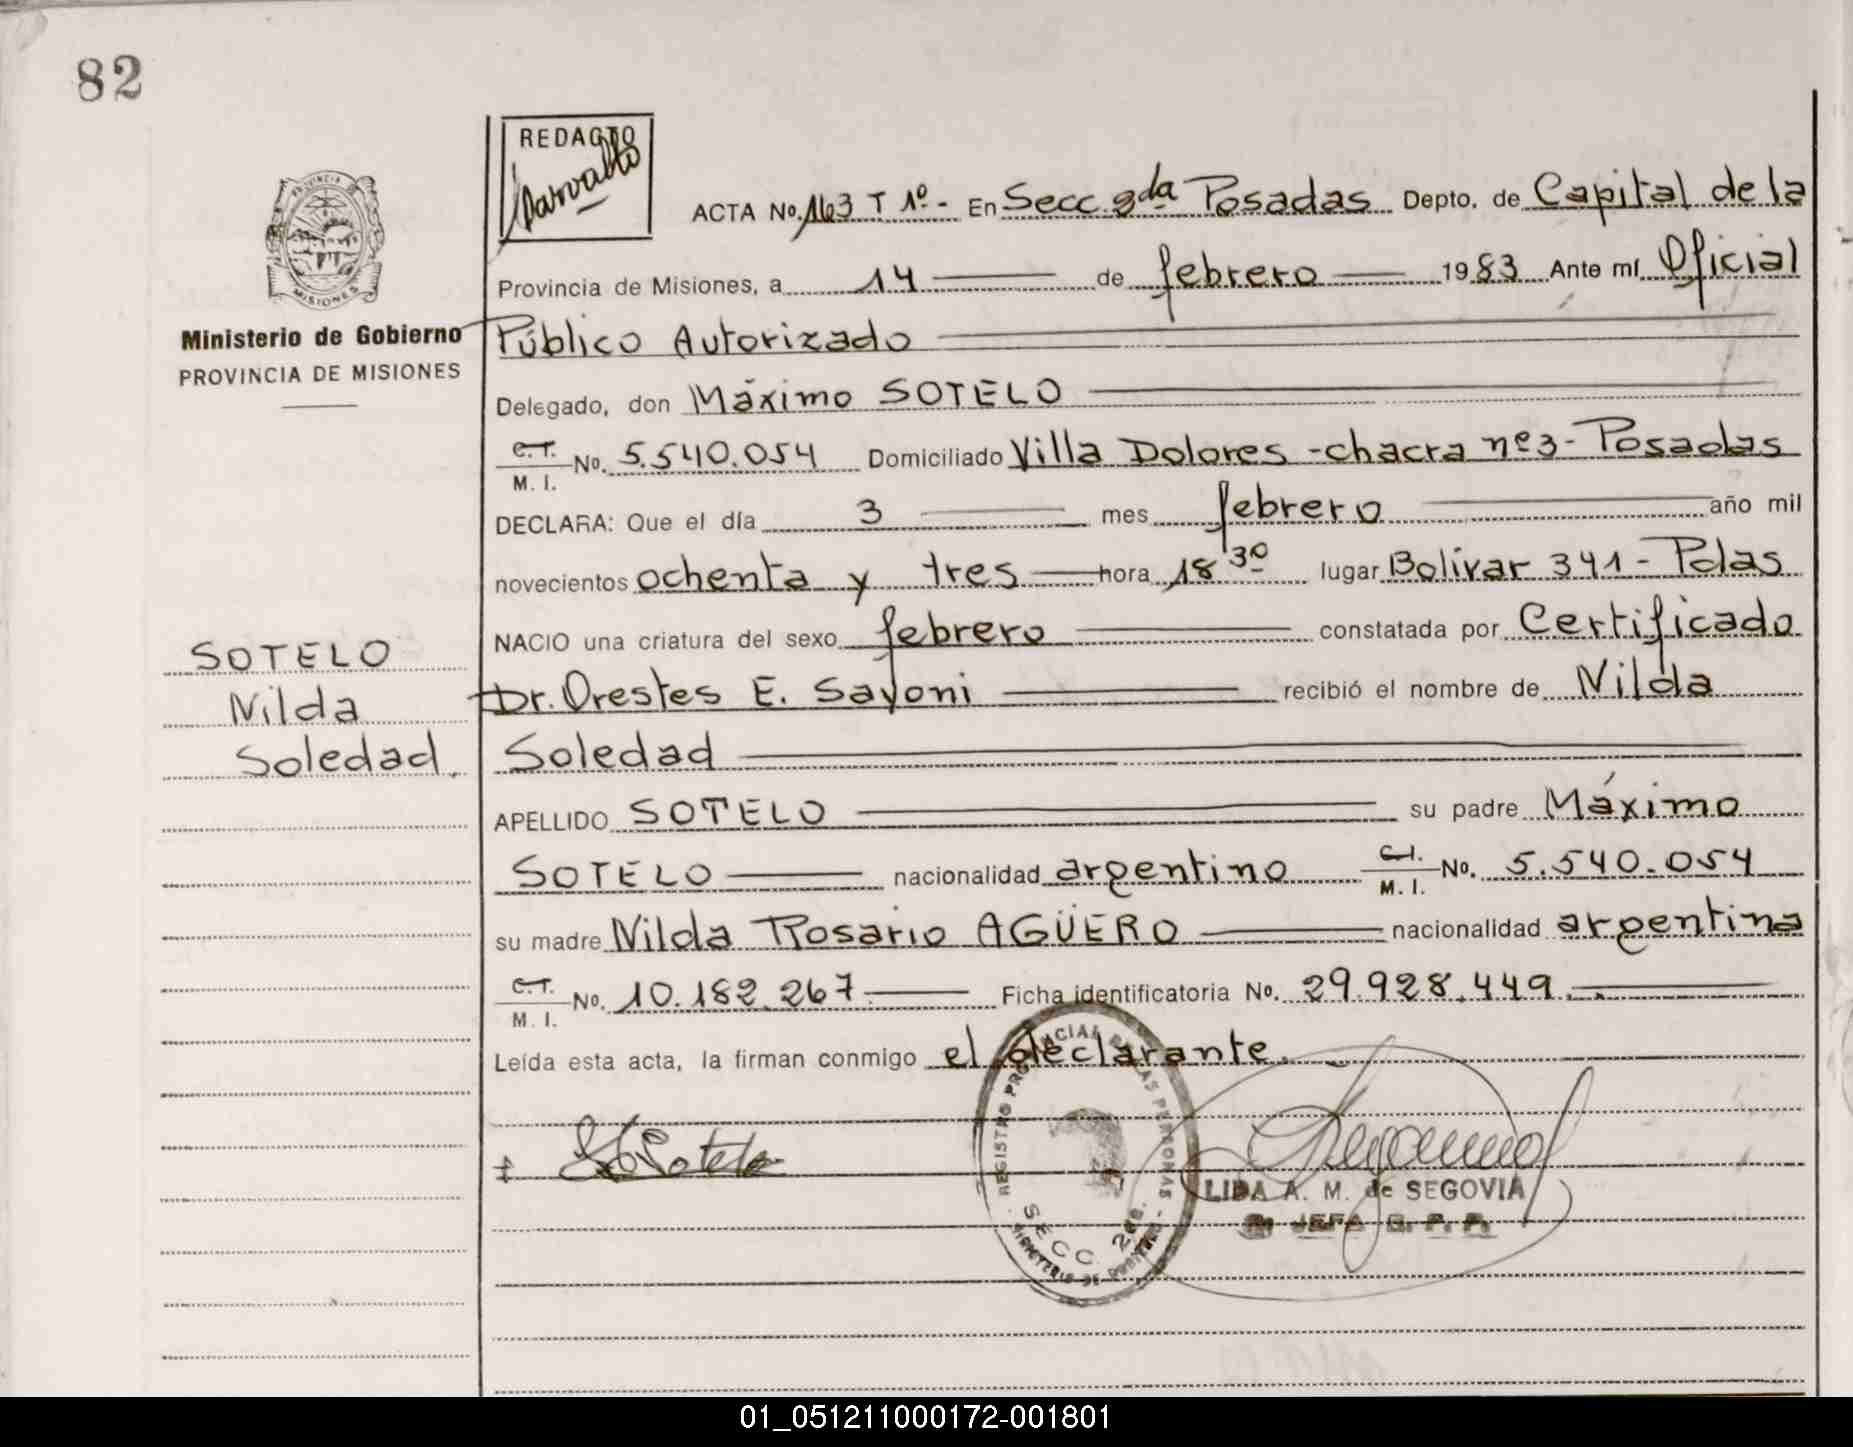 82
REDACTO
Carvallo
PROVINCIA DE
MISIONES
Ministerio de Gobierno
PROVINCIA DE MISIONES
ACTA No. 163 T 1º.- En Secc. 2da Posadas Depto. de Capital de la
Provincia de Misiones, a 14 de febrero 1983 Ante mí Oficial
Público Autorizado
Delegado, don Máximo SOTELO
C.I. M. I. No. 5.540.054 Domiciliado Villa Dolores - chacra nº3 - Posadas
DECLARA: Que el día 3 mes febrero año mil
novecientos ochenta y tres hora 18 30 lugar Bolívar 341 - Pdas
NACIO una criatura del sexo febrero constatada por Certificado
Dr. Orestes E. Savoni recibió el nombre de Nilda
Soledad
APELLIDO SOTELO su padre Máximo
SOTELO nacionalidad argentino C.I. M. I. No. 5.540.054
su madre Nilda Rosario AGÜERO nacionalidad argentina
C.I. M. I. No. 10.182.267 Ficha identificatoria No. 29.928.449.
Leída esta acta, la firman conmigo el declarante.
SOTELO
Nilda
Soledad.
Sotelo
REGISTRO PROVINCIAL DE LAS PERSONAS
SECC. 2da.
MINISTERIO DE
LIDA A. M. de SEGOVIA
JEFA
01_051211000172-001801